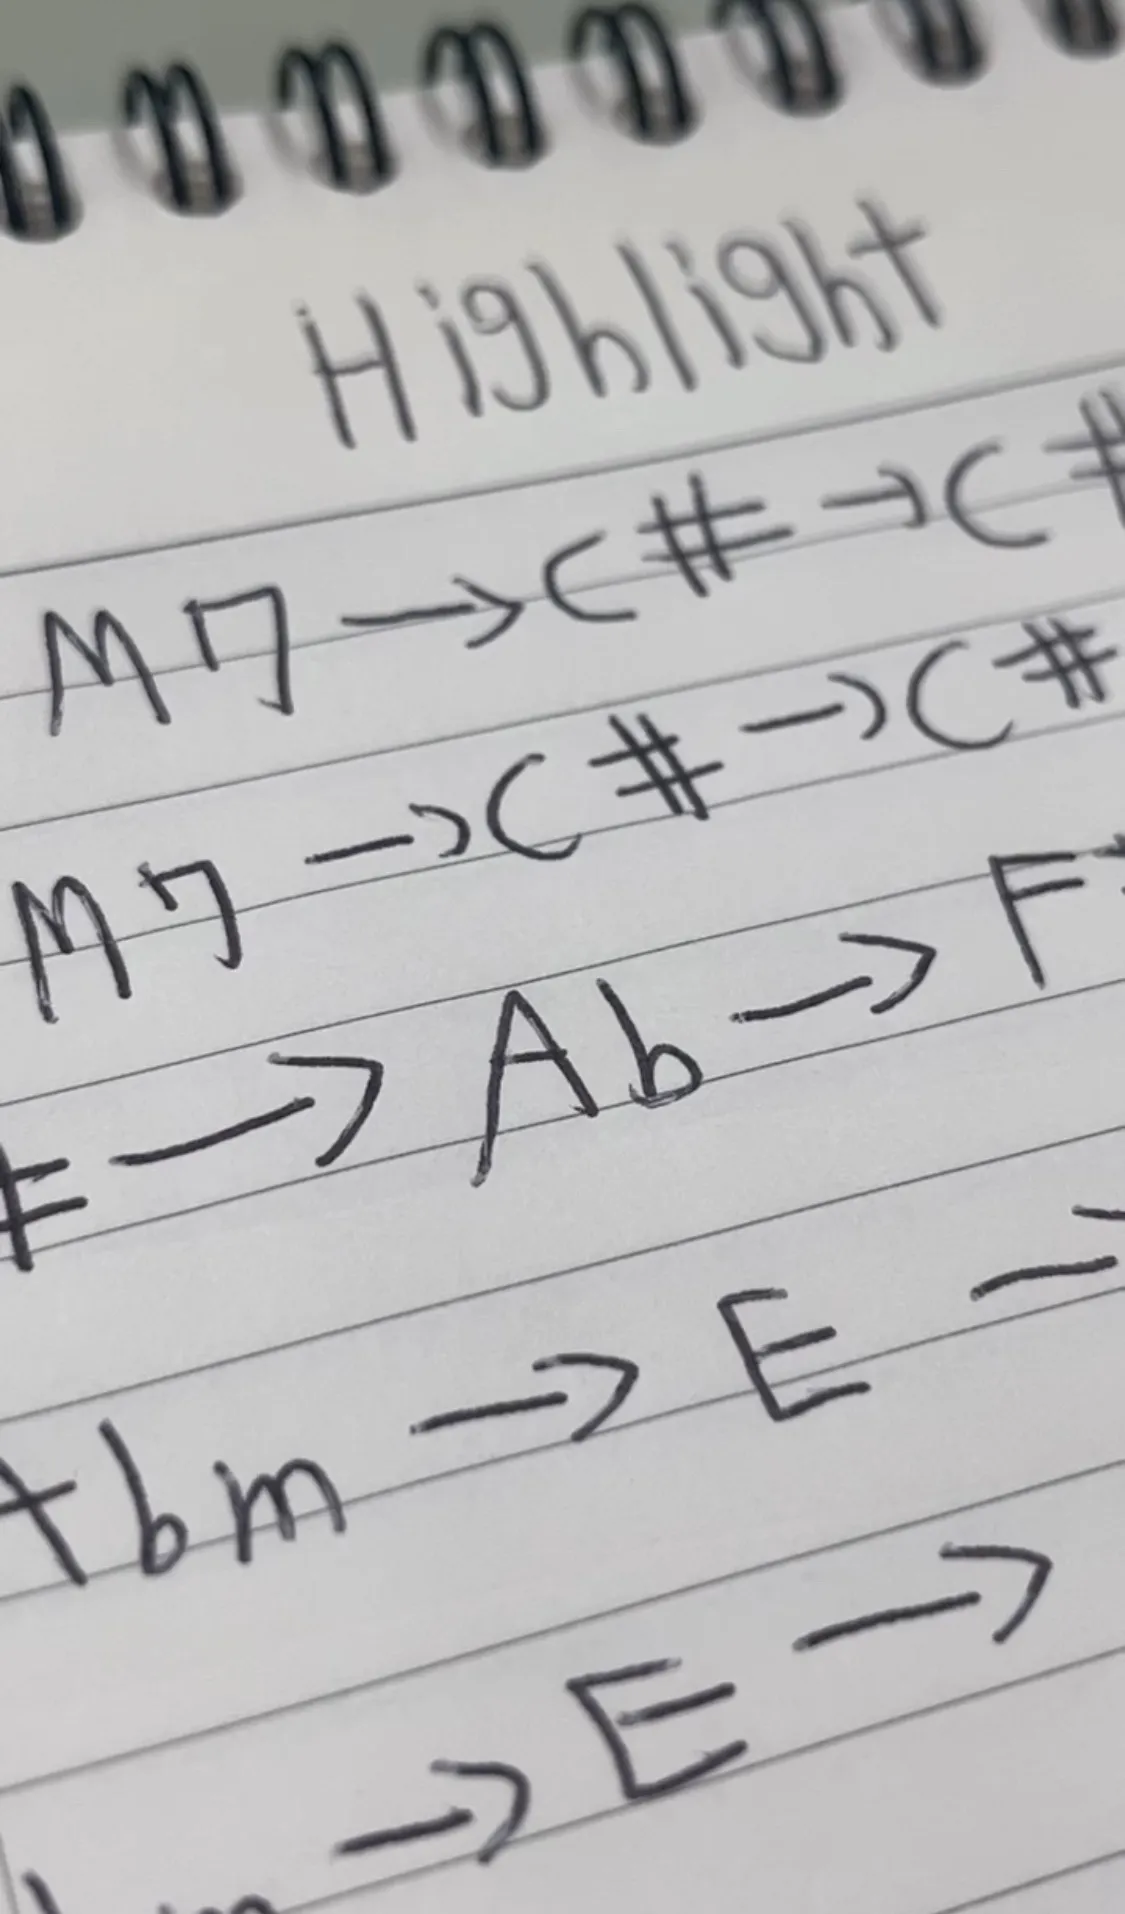 Highlight
M7 → C# → C#
M7 → C# → C#
# → Ab → F
Abm → E →
→ E →